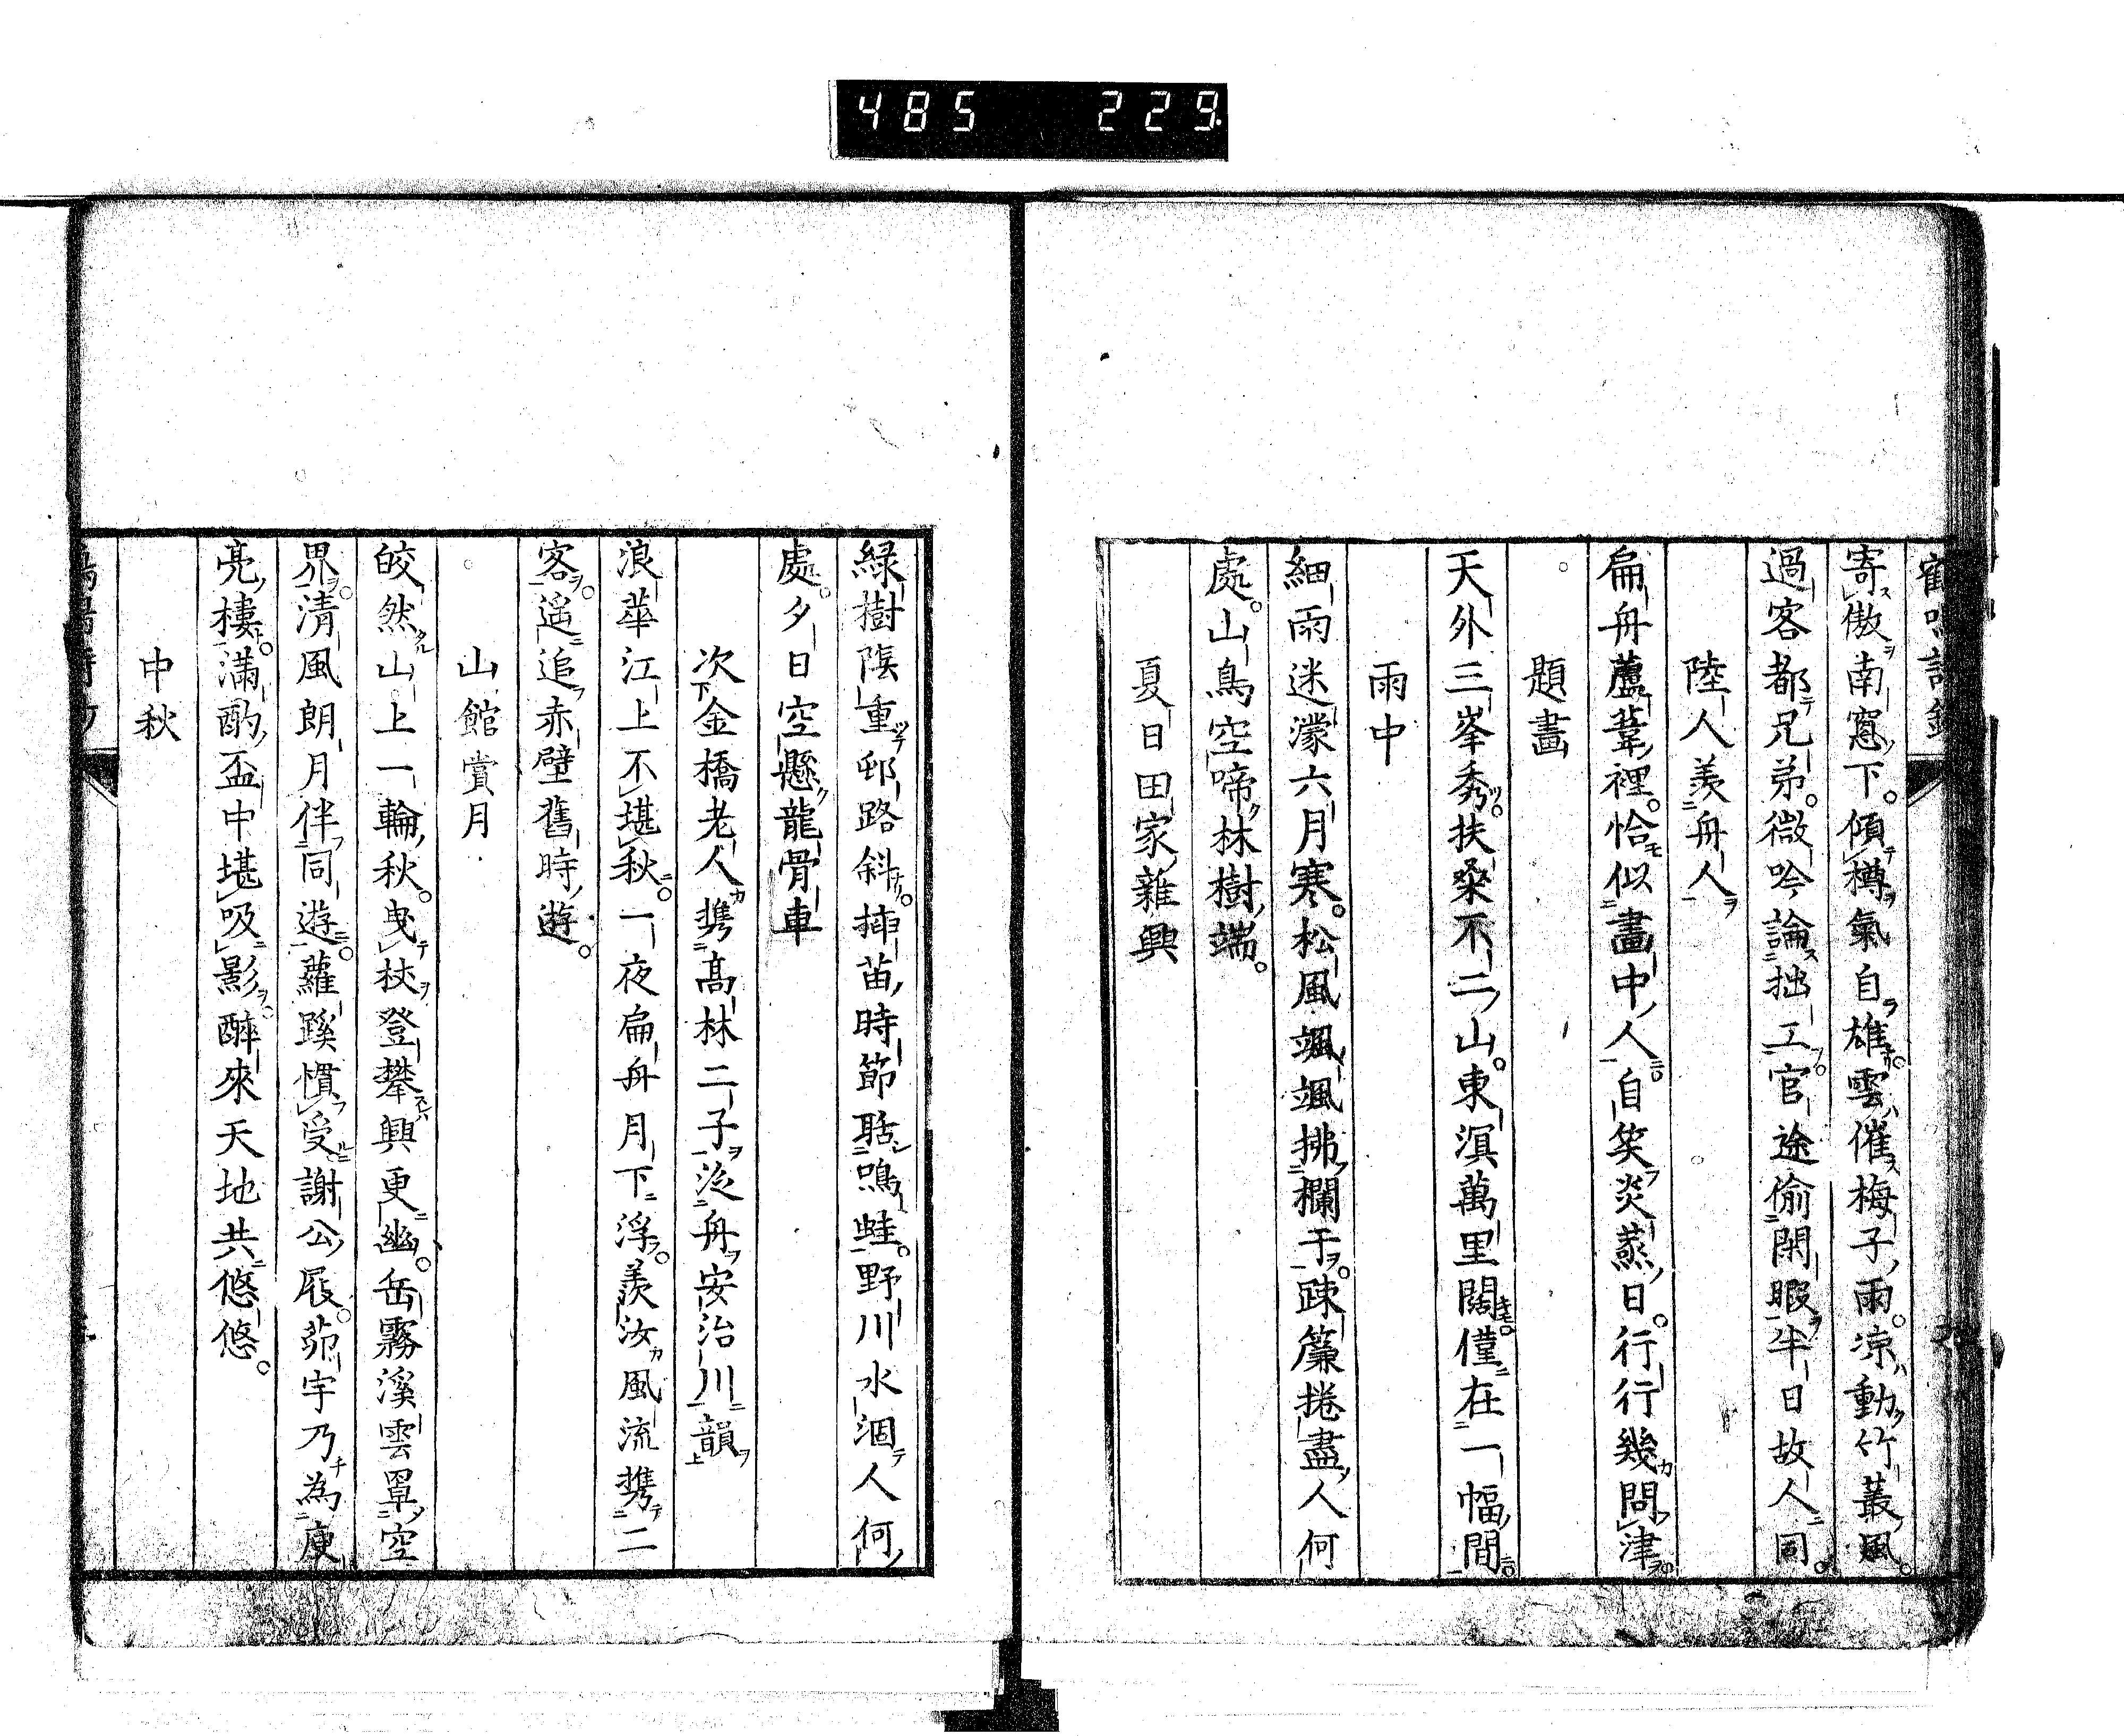 485 229
寄傲南窓下。傾樽氣自雄雲催梅子雨。凉動竹叢風。
過客都兄弟。微吟論拙工官途偷閑暇半日故人同。
陸人羨舟人
扁舟蘆葦裡。恰似畫中人自笑炎蒸日。行行幾問津
題畫
天外三峯秀。扶桑不二山。東溟萬里闊僅在一幅間
雨中
細雨迷濛六月寒。松風颯颯拂欄干。疎簾捲盡人何
處。山鳥空啼林樹端。
夏日田家雜興
緑樹陰重邨路斜。插苗時節聒鳴蛙。野川水涸人何
處。夕日空懸龍骨車
次金橋老人携髙林二子泛舟安治川韻
浪華江上不堪秋。一夜扁舟月下浮。羨汝風流携二
客。遥追赤壁舊時遊。
山館賞月
皎然山上一輪秋。曳杖登攀興更幽。岳霧溪雲罩空
界。清風朗月伴同遊。蘿蹊慣受謝公屐。茆宇乃為庾
亮樓。滿酌盃中堪吸影。醉來天地共悠悠。
中秋